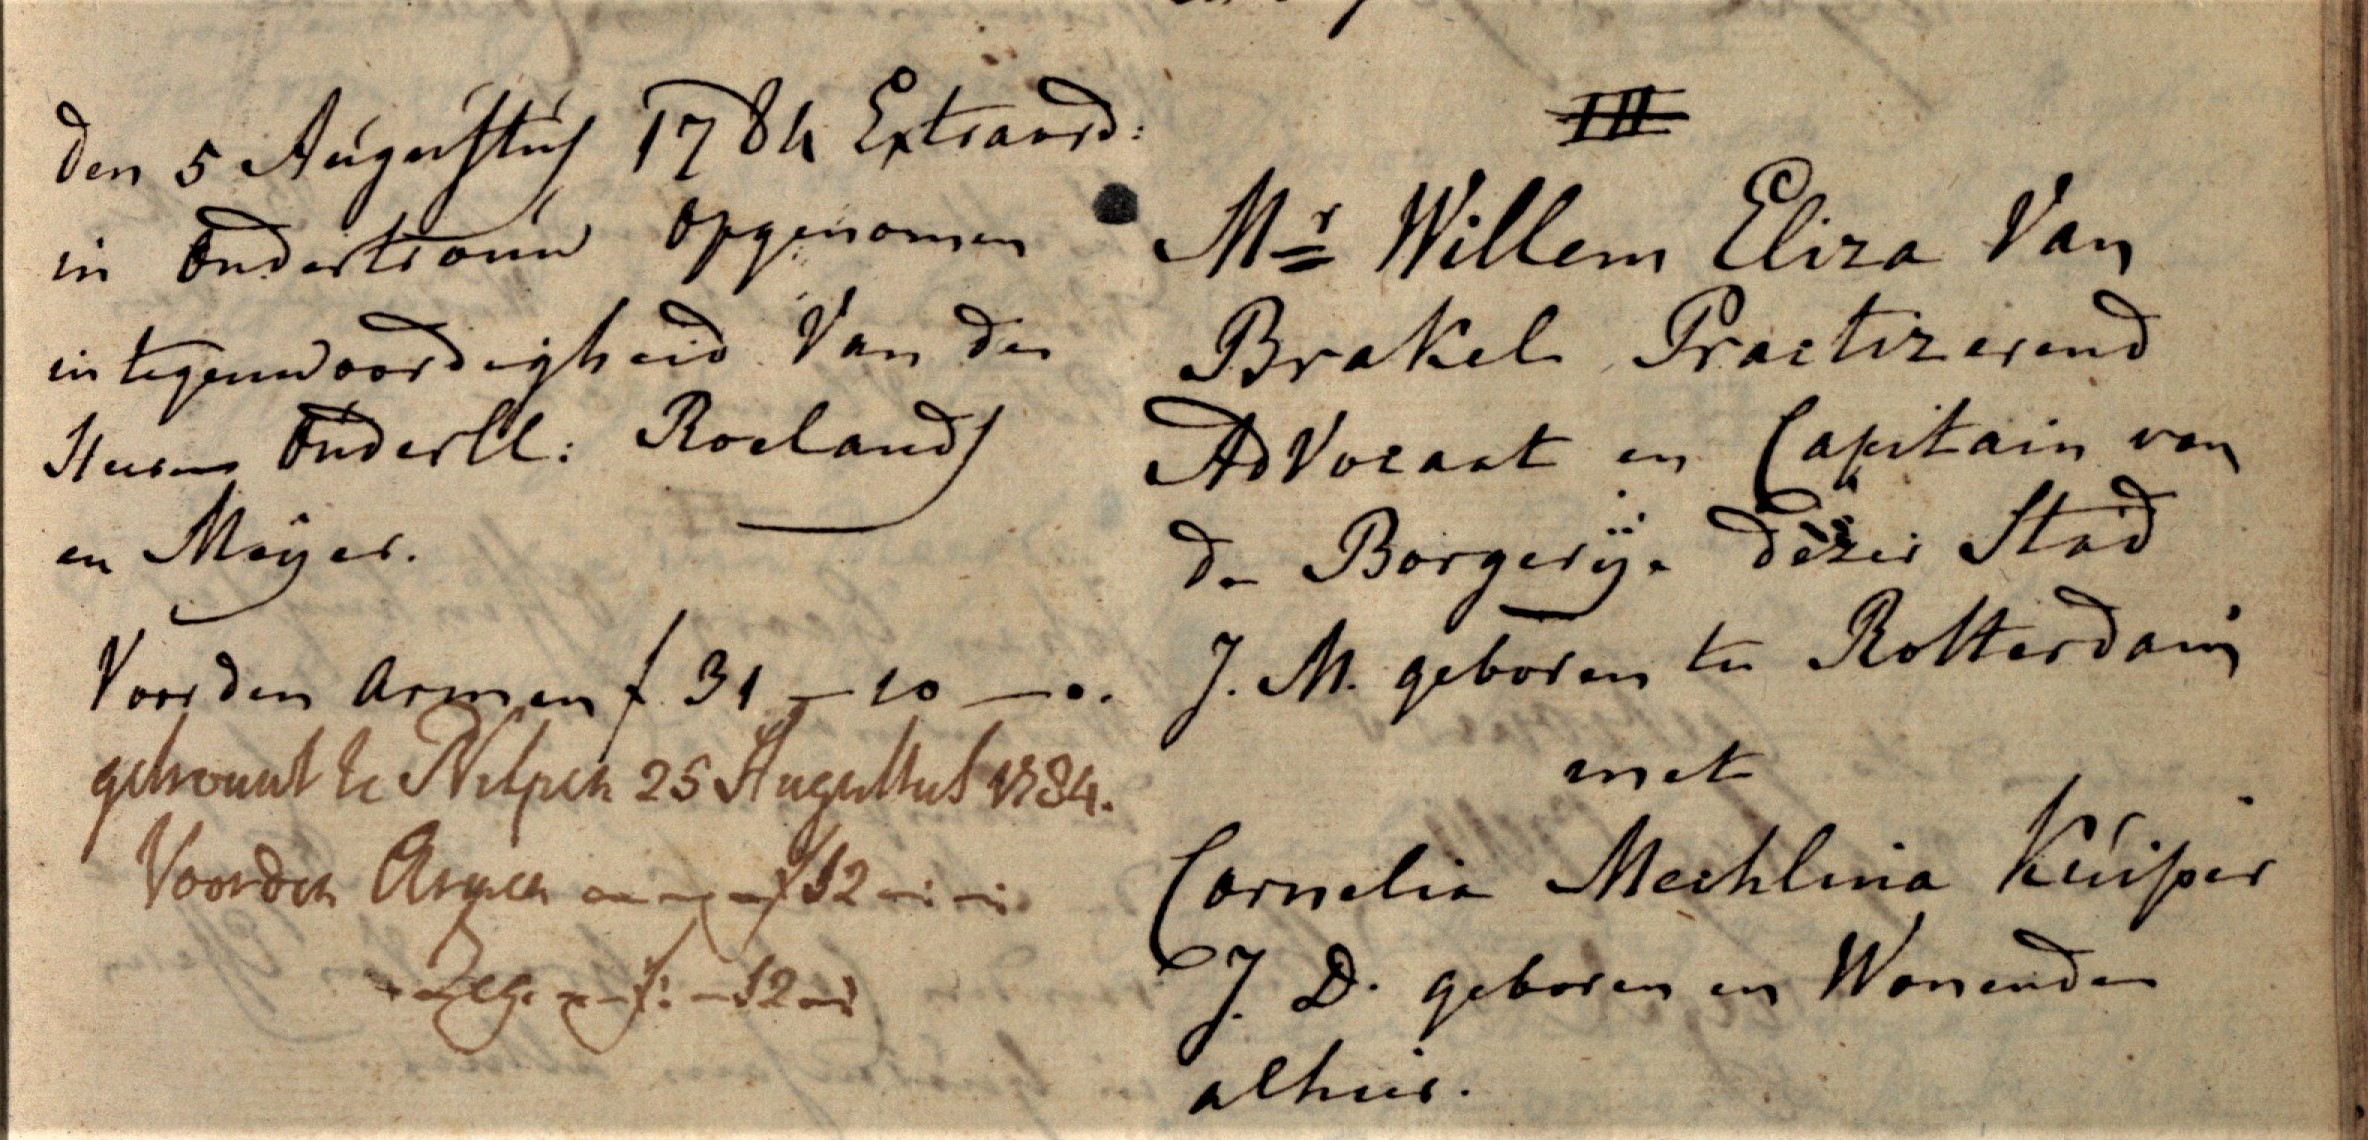 den 5 Augustus 1784 Extraord:
in Ondertrouw opgenomen
in tegenwoordigheid Van de
Heeren Ouderll: Roelands
en Meÿer.
Voor den Armen f 31 — 10 — 0.
getrouwt te 25 Augustus 1784.
Voor den Armen f 12
f: 12
III
Mr Willem Eliza Van
Brakel Practizerend
AdVocaat en Capitain van
de Borgerÿe dezer Stad
J. M. geboren te Rotterdam
met
Cornelia Mechlina Kúiper
J. D. geboren en Wonende
alhier.